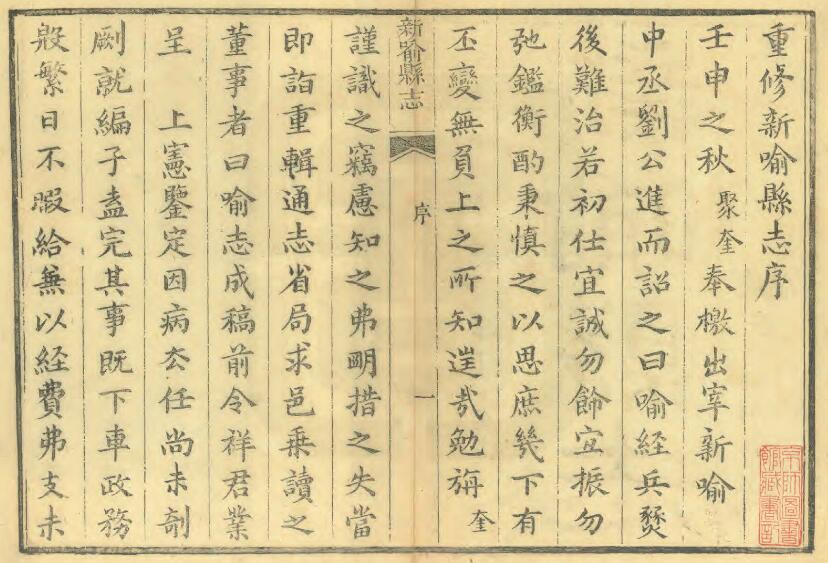 重修新喻縣志序
壬申之秋聚奎奉檄出宰新喻
中丞劉公進而詔之曰喻經兵燹
後難治若初仕宜誠勿餙宜振勿
弛鑑衡酌秉慎之以思庶幾下有
丕變無負上之所知往哉勉旃奎
新喻縣志 序 一
謹識之竊慮知之弗明措之失當
即詣重輯通志省局求邑乘讀之
董事者曰喻志成稿前令祥君業
呈 上憲鑒定因病厺任尚未剞
劂就編子盍完其事既下車政務
殷繁日不暇給兼以経費弗支未
京師圖書
館藏書記